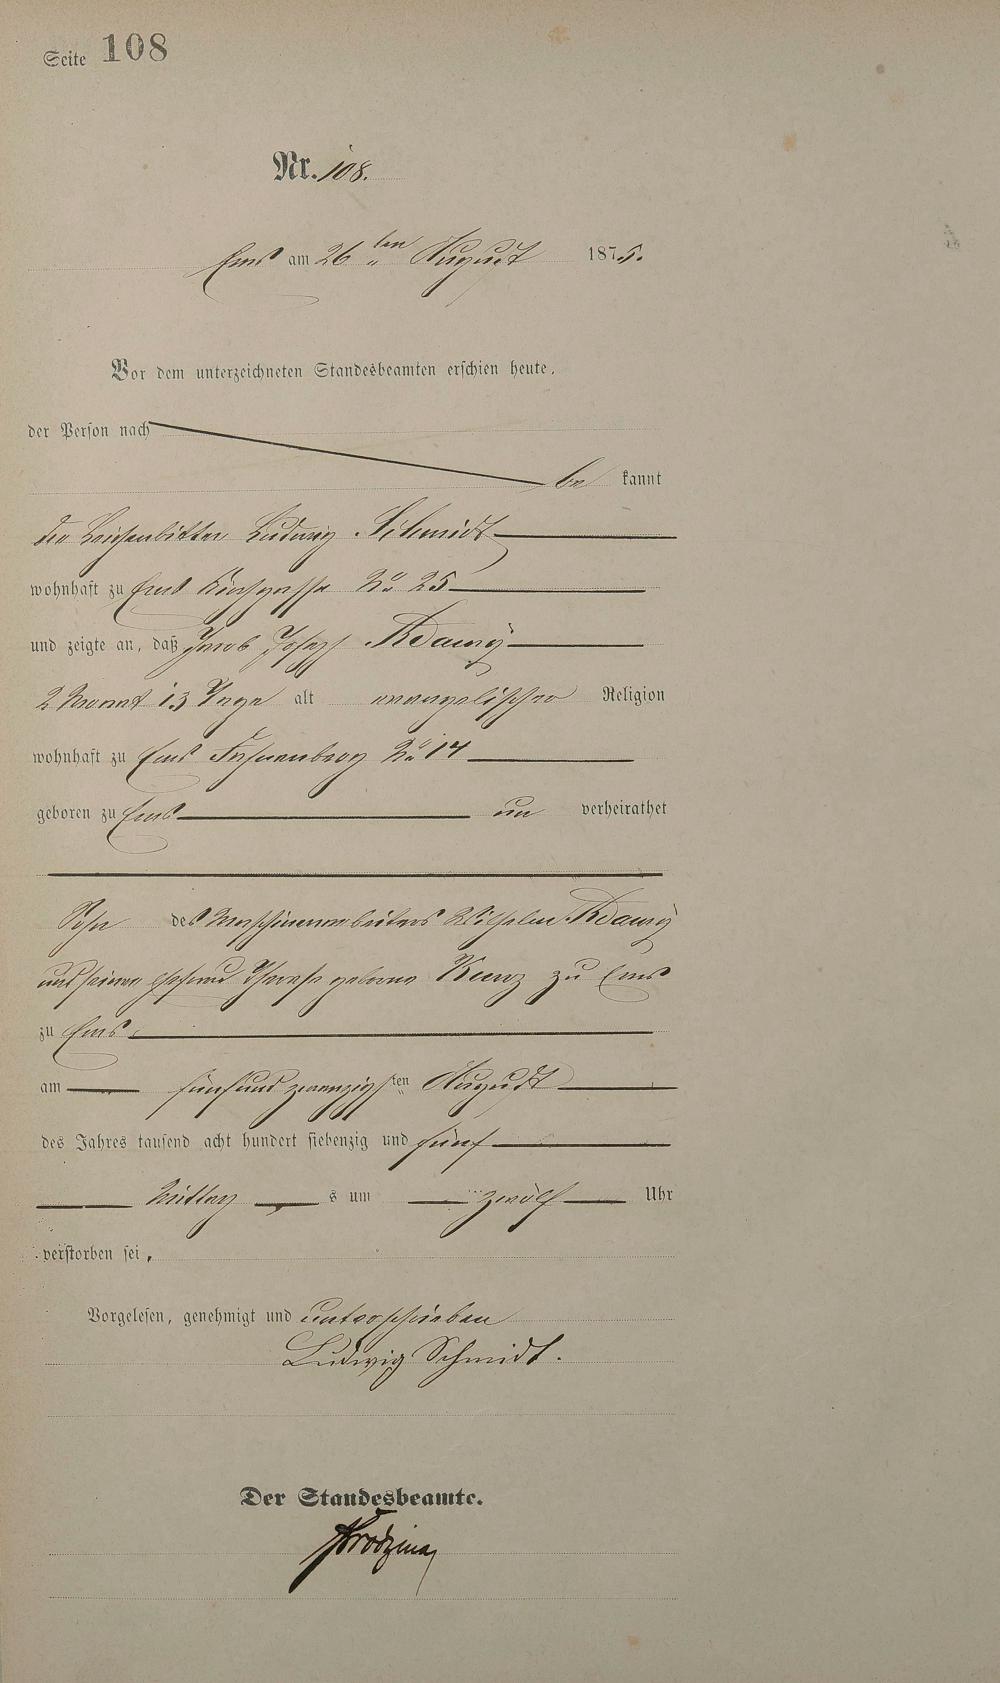 Seite 108
Nr. 108.
Ems am 26ten August 1875.
Vor dem unterzeichneten Standesbeamten erschien heute,
der Person nach
be kannt
der Leichenbitter Ludwig Schmidt
wohnhaft zu Ems Kirchgasse No 25
und zeigte an, daß Jacob Joseph
2 Monat 13 Tage alt evangelischer Religion
wohnhaft zu Ems No 14
geboren zu Ems un verheirathet
Sohn des Maschinenarbeiters Wilhelm
und seiner Ehefrau Therese geborne Kunz zu Ems
zu Ems
am fünfundzwanzigsten August
des Jahres tausend acht hundert siebenzig und fünf
Mittag s um zwölf Uhr
verstorben sei.
Vorgelesen, genehmigt und unterschrieben
Ludwig Schmidt.
Der Standesbeamte.